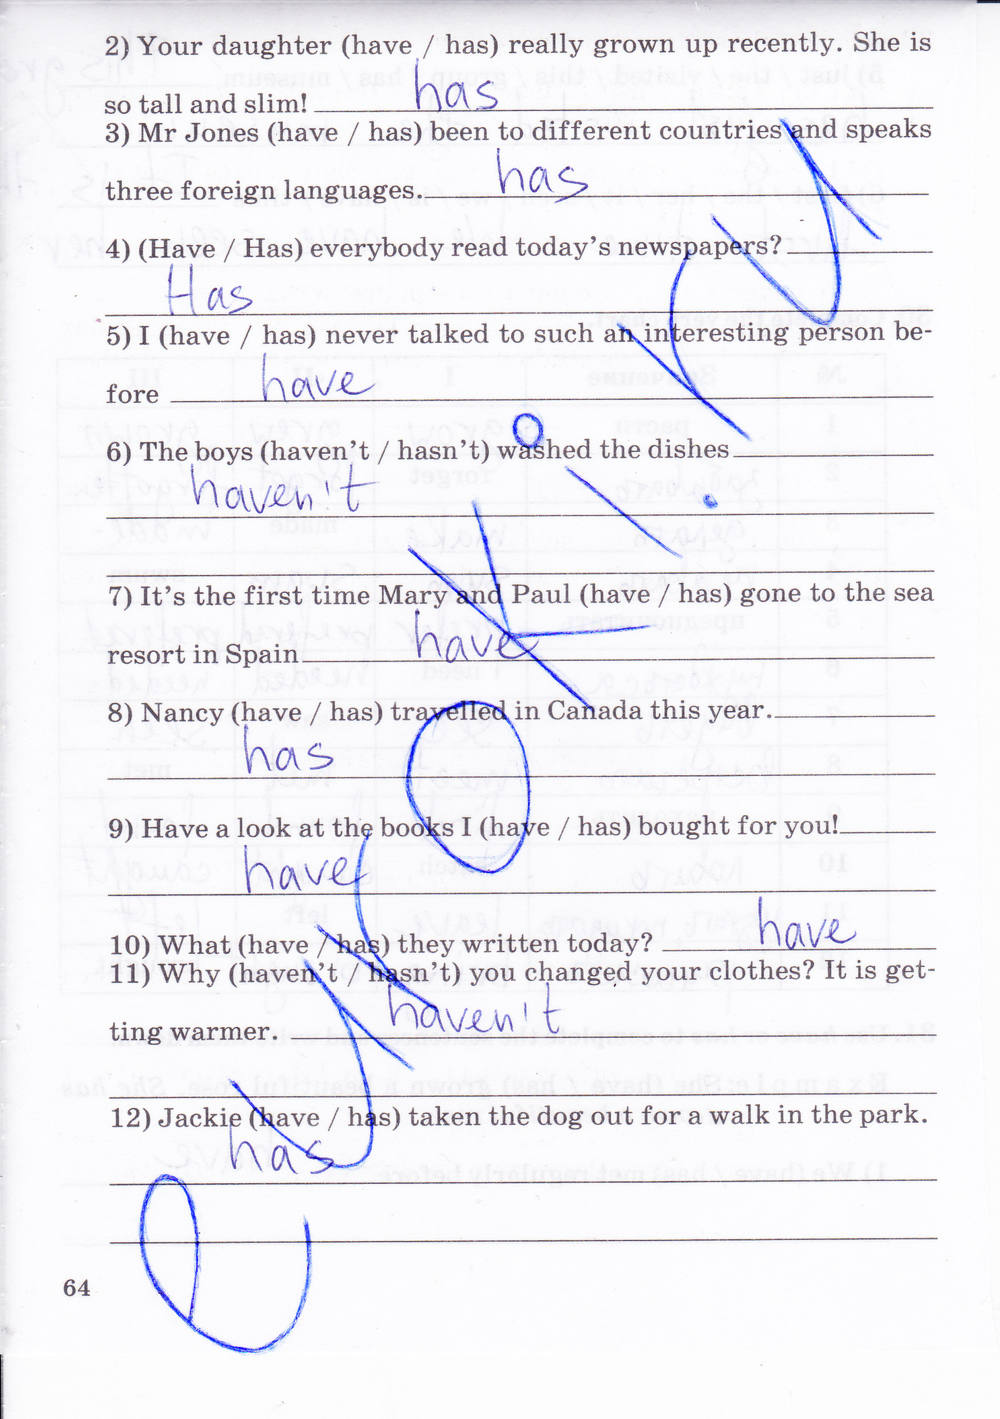 2) Your daughter (have / has) really grown up recently. She is
so tall and slim! has
3) Mr Jones (have / has) been to different countries and speaks
three foreign languages. has
4) (Have / Has) everybody read today's newspapers?
Has
5) I (have / has) never talked to such an interesting person be-
fore have
6) The boys (haven't / hasn't) washed the dishes
haven't
7) It's the first time Mary and Paul (have / has) gone to the sea
resort in Spain have
8) Nancy (have / has) travelled in Canada this year.
has
9) Have a look at the books I (have / has) bought for you!
have
10) What (have / has) they written today? have
11) Why (haven't / hasn't) you changed your clothes? It is get-
ting warmer. haven't
12) Jackie (have / has) taken the dog out for a walk in the park.
has
64